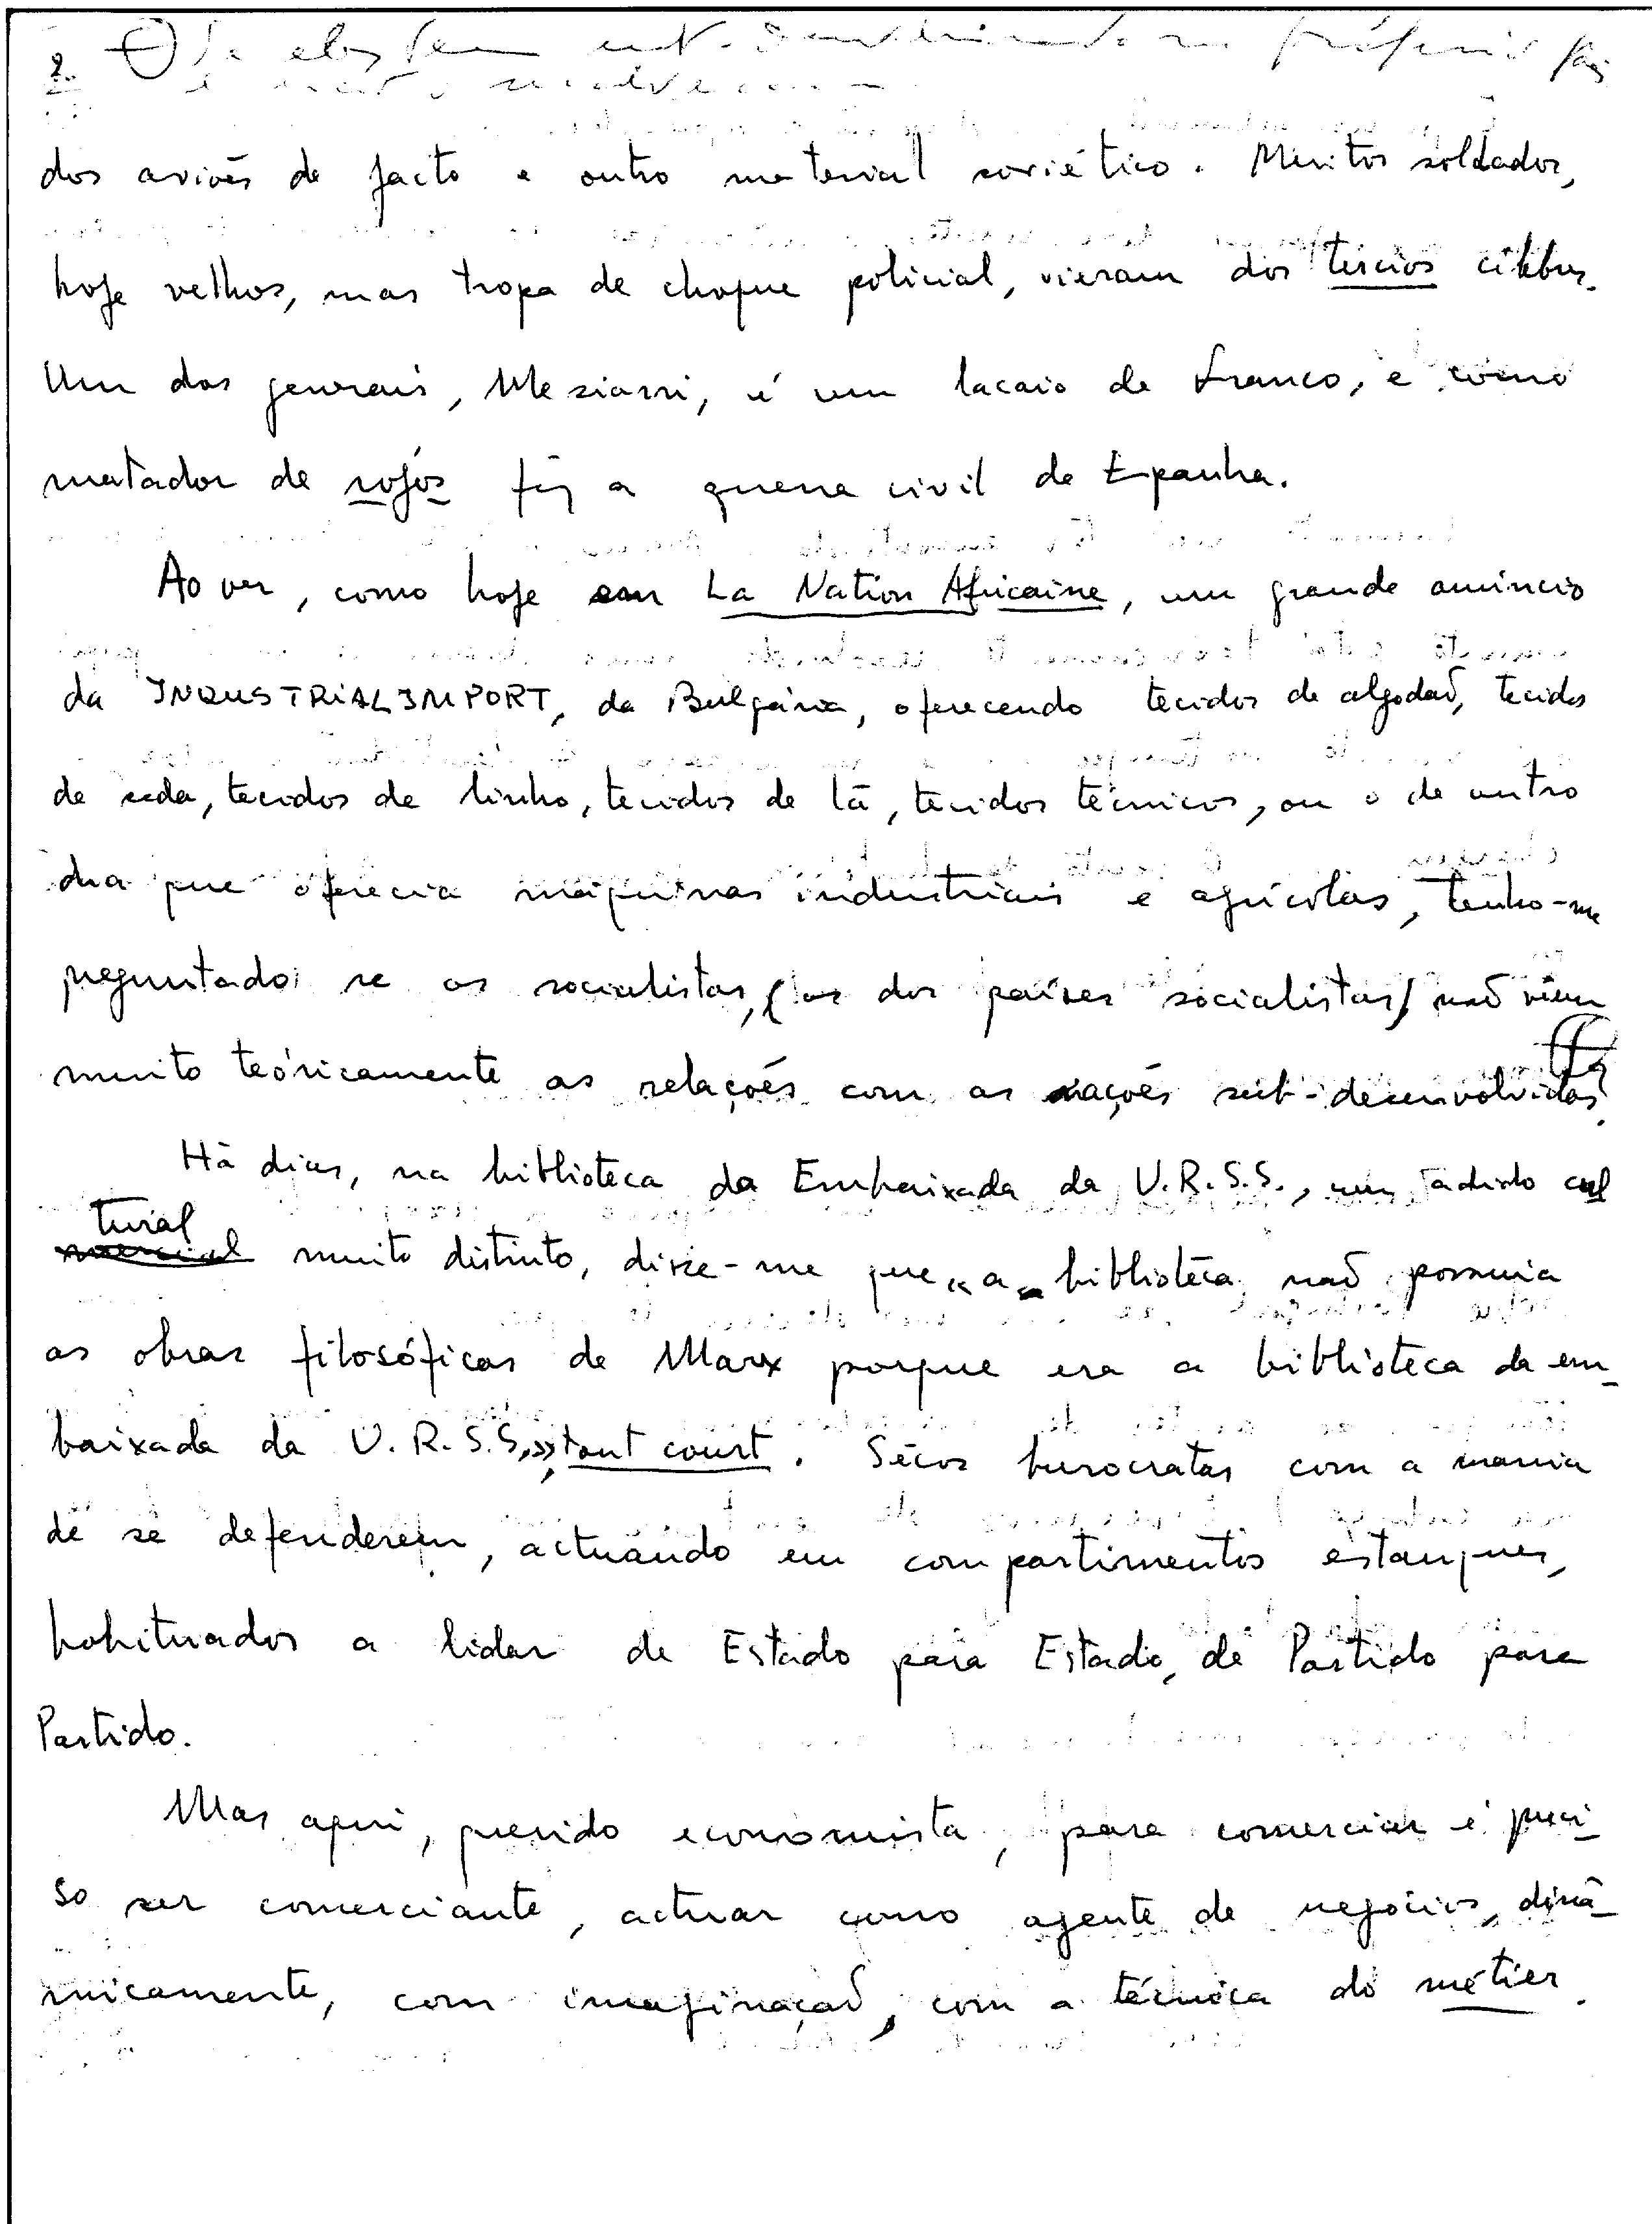 2.
dos aviões de jacto e outro material soviético. Muitos soldados,
hoje velhos, mas tropa de choque policial, vieram dos tercios célebres.
Um dos generais, Meziani, é um lacaio de Franco, e como
matador de rojos fez a guerra civil de Espanha.
Ao ver, como hoje em La Nation Africaine, um grande anúncio
da INDUSTRIALIMPORT, da Bulgária, oferecendo tecidos de algodão, tecidos
de seda, tecidos de linho, tecidos de lã, tecidos técnicos, ou o de outro
dia que oferecia máquinas industriais e agrícolas, tenho-me
preguntado se os socialistas, (os dos países socialistas) não vêem
muito teóricamente as relações com as nações sub-desenvolvidas.
Há dias, na biblioteca da Embaixada da U.R.S.S., um adido cul
tural muito distinto, disse-me que "a biblioteca não possuia
as obras filosóficas de Marx porque era a biblioteca da em-
baixada da U.R.S.S.», tout court. Sêcos burocratas com a mania
de se defenderem, actuando em compartimentos estanques,
habituados a lidar de Estado para Estado, de Partido para
Partido.
Mas aqui, querido economista, para comerciar é preci-
so ser comerciante, actuar como agente de negócios, dinâ-
micamente, com imaginação, com a técnica do métier.